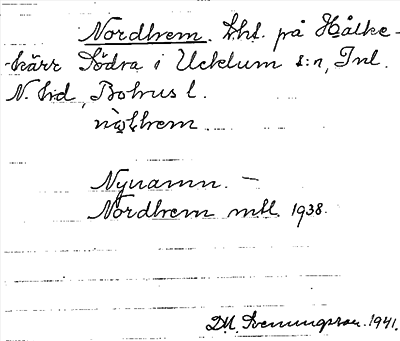 Nordhem. Lht. på Hålke-
kärr Södra i Ucklum s:n, Inl.
N. hd, Bohus l.
Nynamn. –
Nordhem mtl. 1938.
D.M. Svenningsson. 1941.